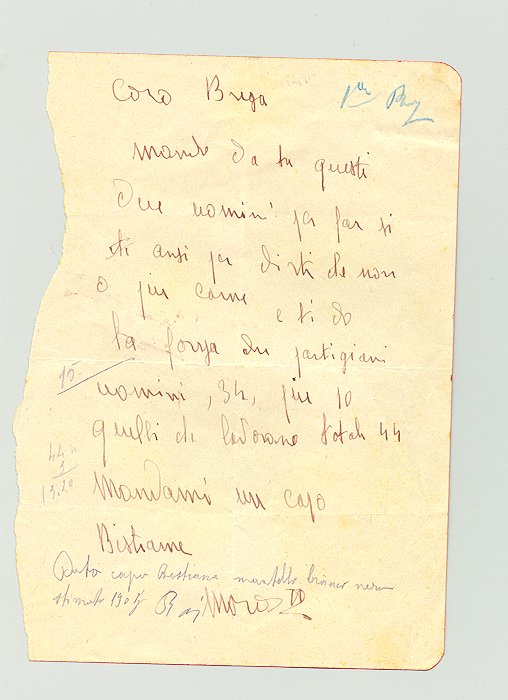 Caro Brega
mando da tu questi
Due uomini pa far si
ti ansi pa dirti che non
o piu carne e ti do
la forza dei partigiani
95-
uomini, 34, piu 10
quelli che lavorano totale 44
44
3
13.20
mandami un capo
Bistiame
Dato capo Bestiame mantello bianco nero
stimato 190 Kg Moro